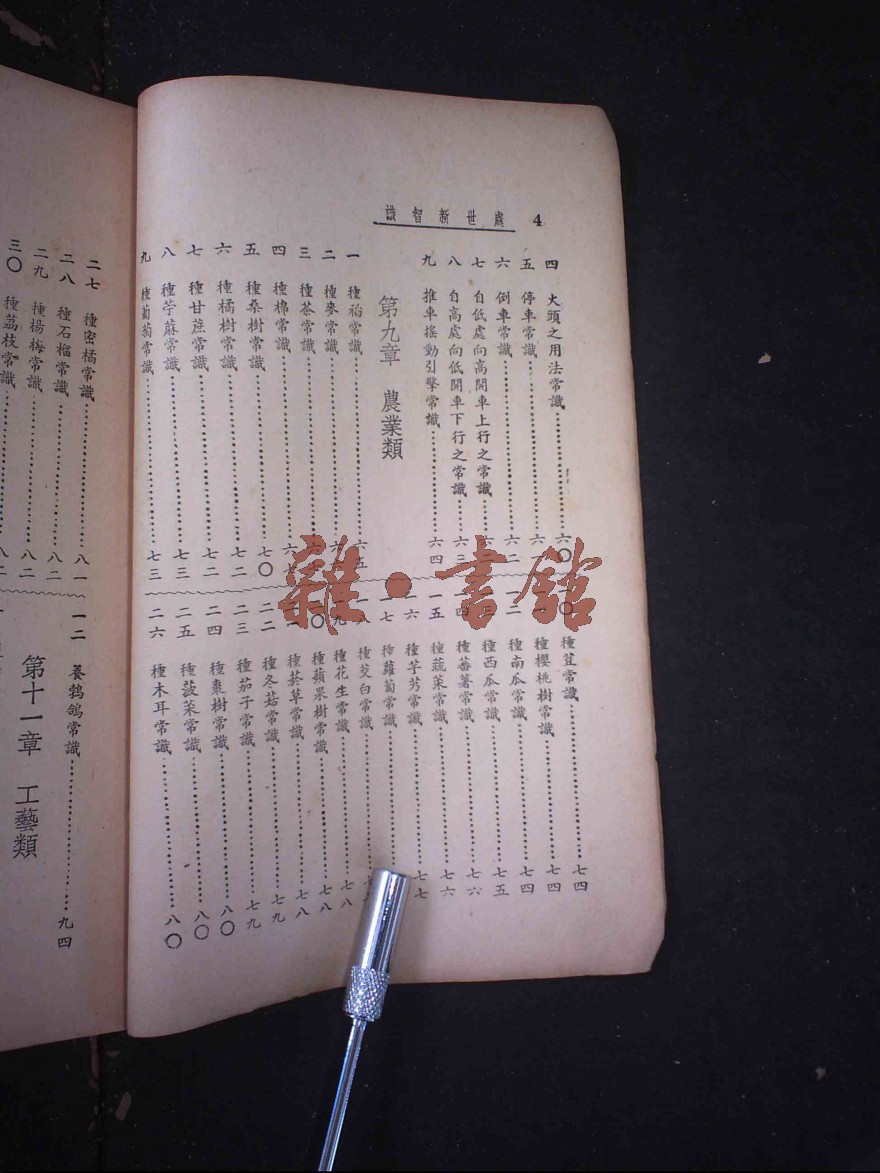 4 處世新智識
四 火頭之用法常識……六〇
五 停車常識……六
六 倒車常識……六二
七 自低處向高開車上行之常識……六
八 自高處向低開車下行之常識……六三
九 推車搖動引擎常識……六四
第九章 農業類
一 種稻常識……六五
二 種麥常識……六
三 種茶常識……六
四 種棉常識……六
五 種桑樹常識……七〇
六 種橘樹常識……七二
七 種甘蔗常識……七二
八 種苧麻常識……七三
九 種葡萄常識……七三
一〇 種荳常識……七四
種櫻桃樹常識……七四
一二 種南瓜常識……七四
種西瓜常識……七五
一四 種蕃薯常識……七六
一五 種蔬菜常識……七六
一六 種芋艿常識……七七
一七 種蘿蔔常識……七
一八 種茭白常識……七
一九 種花生常識……七八
〇 種蘋果樹常識……七八
種菸草常識……七八
二二 種冬菇常識……七九
二三 種茄子常識……七九
二四 種棗樹常識……八〇
二五 種菠菜常識……八〇
二六 種木耳常識……八〇
二七 種密橘常識……八一
二八 種石榴常識……八二
二九 種楊梅常識……八二
三〇 種荔枝常識……八二
一二 養鵓鴿常識……九四
第十一章 工藝類
雜·書館